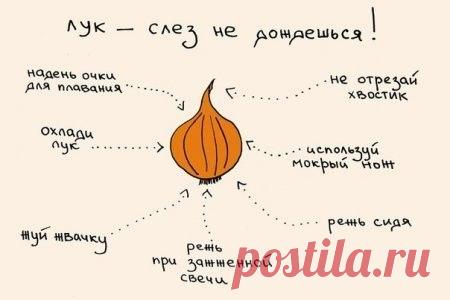 лук – слез не дождешься!
надень очки
для плавания
не отрезай
хвостик
охлади
лук
используй
мокрый нож
жуй жвачку
режь
при зажженной
свечи
режь сидя
postila.ru